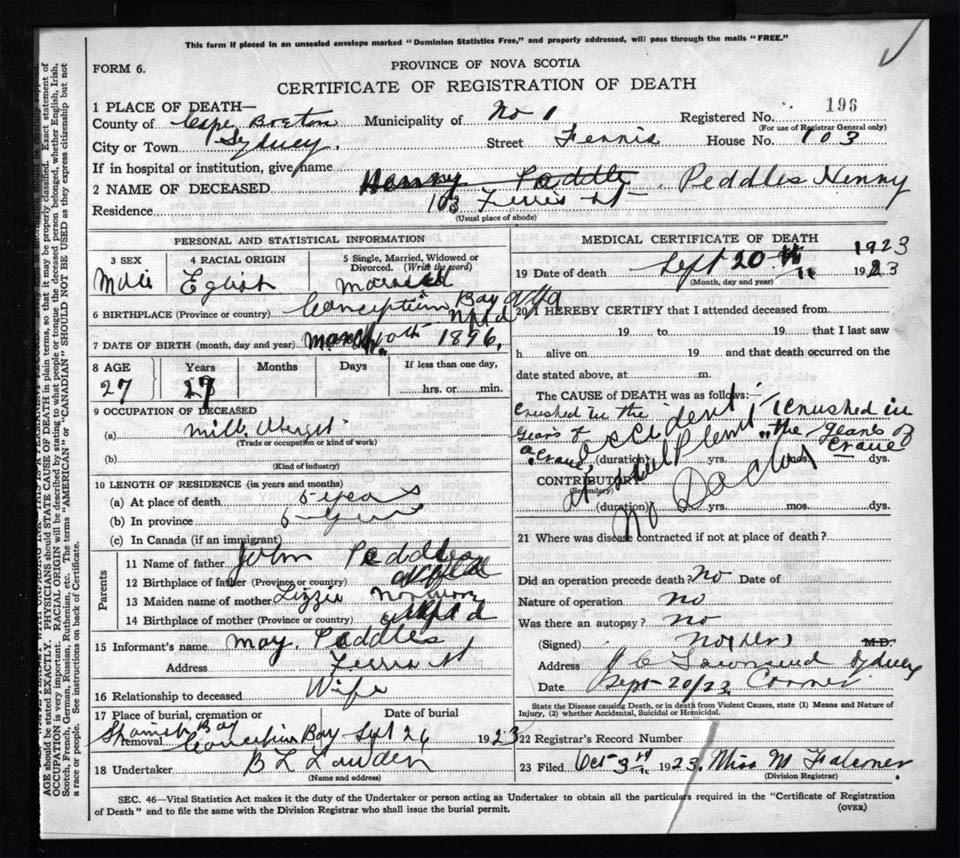 This form if placed in an unsealed envelope marked "Dominion Statistics Free," and properly addressed, will pass through the mails "FREE."
FORM 6.
PROVINCE OF NOVA SCOTIA
CERTIFICATE OF REGISTRATION OF DEATH
196
1 PLACE OF DEATH—
County of Cape Breton Municipality of No 1 Registered No.
(For use of Registrar General only)
City or Town Sydney. Street Ferris House No. 103
If in hospital or institution, give name
2 NAME OF DECEASED Henny Peddle, Peddles Henny
Residence 103 Ferris St
(Usual place of abode)
PERSONAL AND STATISTICAL INFORMATION
3 SEX 4 RACIAL ORIGIN 5 Single, Married, Widowed or Divorced. (Write the word)
Male Eglish Married
6 BIRTHPLACE (Province or country) Conception Bay Nfld
7 DATE OF BIRTH (month, day and year) March 10th 1896.
8 AGE Years Months Days If less than one day,
27 27 hrs. or min.
9 OCCUPATION OF DECEASED
(a) Mill
(Trade or occupation or kind of work)
(b)
(Kind of industry)
10 LENGTH OF RESIDENCE (in years and months)
(a) At place of death 5 years
(b) In province 5 years
(c) In Canada (if an immigrant)
Parents
11 Name of father John Peddles
12 Birthplace of father (Province or country) Nfld
13 Maiden name of mother Lizzie
14 Birthplace of mother (Province or country) Nfld
15 Informant's name May Peddles
Address Ferris St
16 Relationship to deceased Wife
17 Place of burial, cremation or removal Date of burial
Bay Conception Bay Sept 26 1923
18 Undertaker B L Lowden
(Name and address)
MEDICAL CERTIFICATE OF DEATH
1923
19 Date of death Sept 20 1923
(Month, day and year)
20 I HEREBY CERTIFY that I attended deceased from
19 to 19 that I last saw
h alive on 19 and that death occurred on the
date stated above, at m.
The CAUSE of DEATH was as follows:
Crushed in the gears of a Crane
Accident at Steel Plant
"Crushed in the gears of Crane"
(duration) yrs. mos. dys.
CONTRIBUTORY
(Secondary)
(duration) yrs. mos. dys.
No Doctor
21 Where was disease contracted if not at place of death?
Did an operation precede death? No Date of
Nature of operation No
Was there an autopsy? No
(Signed) M.D.
Address J C Townsend Sydney
Date Sept 20/23
State the Disease causing Death, or in death from Violent Causes, state (1) Means and Nature of Injury, (2) whether Accidental, Suicidal or Homicidal.
22 Registrar's Record Number
23 Filed Oct 3rd 1923. Miss M Falconer
(Division Registrar)
SEC. 46—Vital Statistics Act makes it the duty of the Undertaker or person acting as Undertaker to obtain all the particulars required in the "Certificate of Registration
of Death" and to file the same with the Division Registrar who shall issue the burial permit. (OVER)
AGE should be stated EXACTLY. PHYSICIANS should STATE CAUSE OF DEATH in plain terms, so that it may be properly classified. Exact statement of
OCCUPATION is very important. RACIAL ORIGIN will be described by stating to what people or tongue the deceased person belonged, whether English, Irish,
Scotch, French, German, Russian, Ruthenian, etc. The terms "AMERICAN" or "CANADIAN" SHOULD NOT BE USED as they express citizenship but not
a race or people. See instructions on back of Certificate.